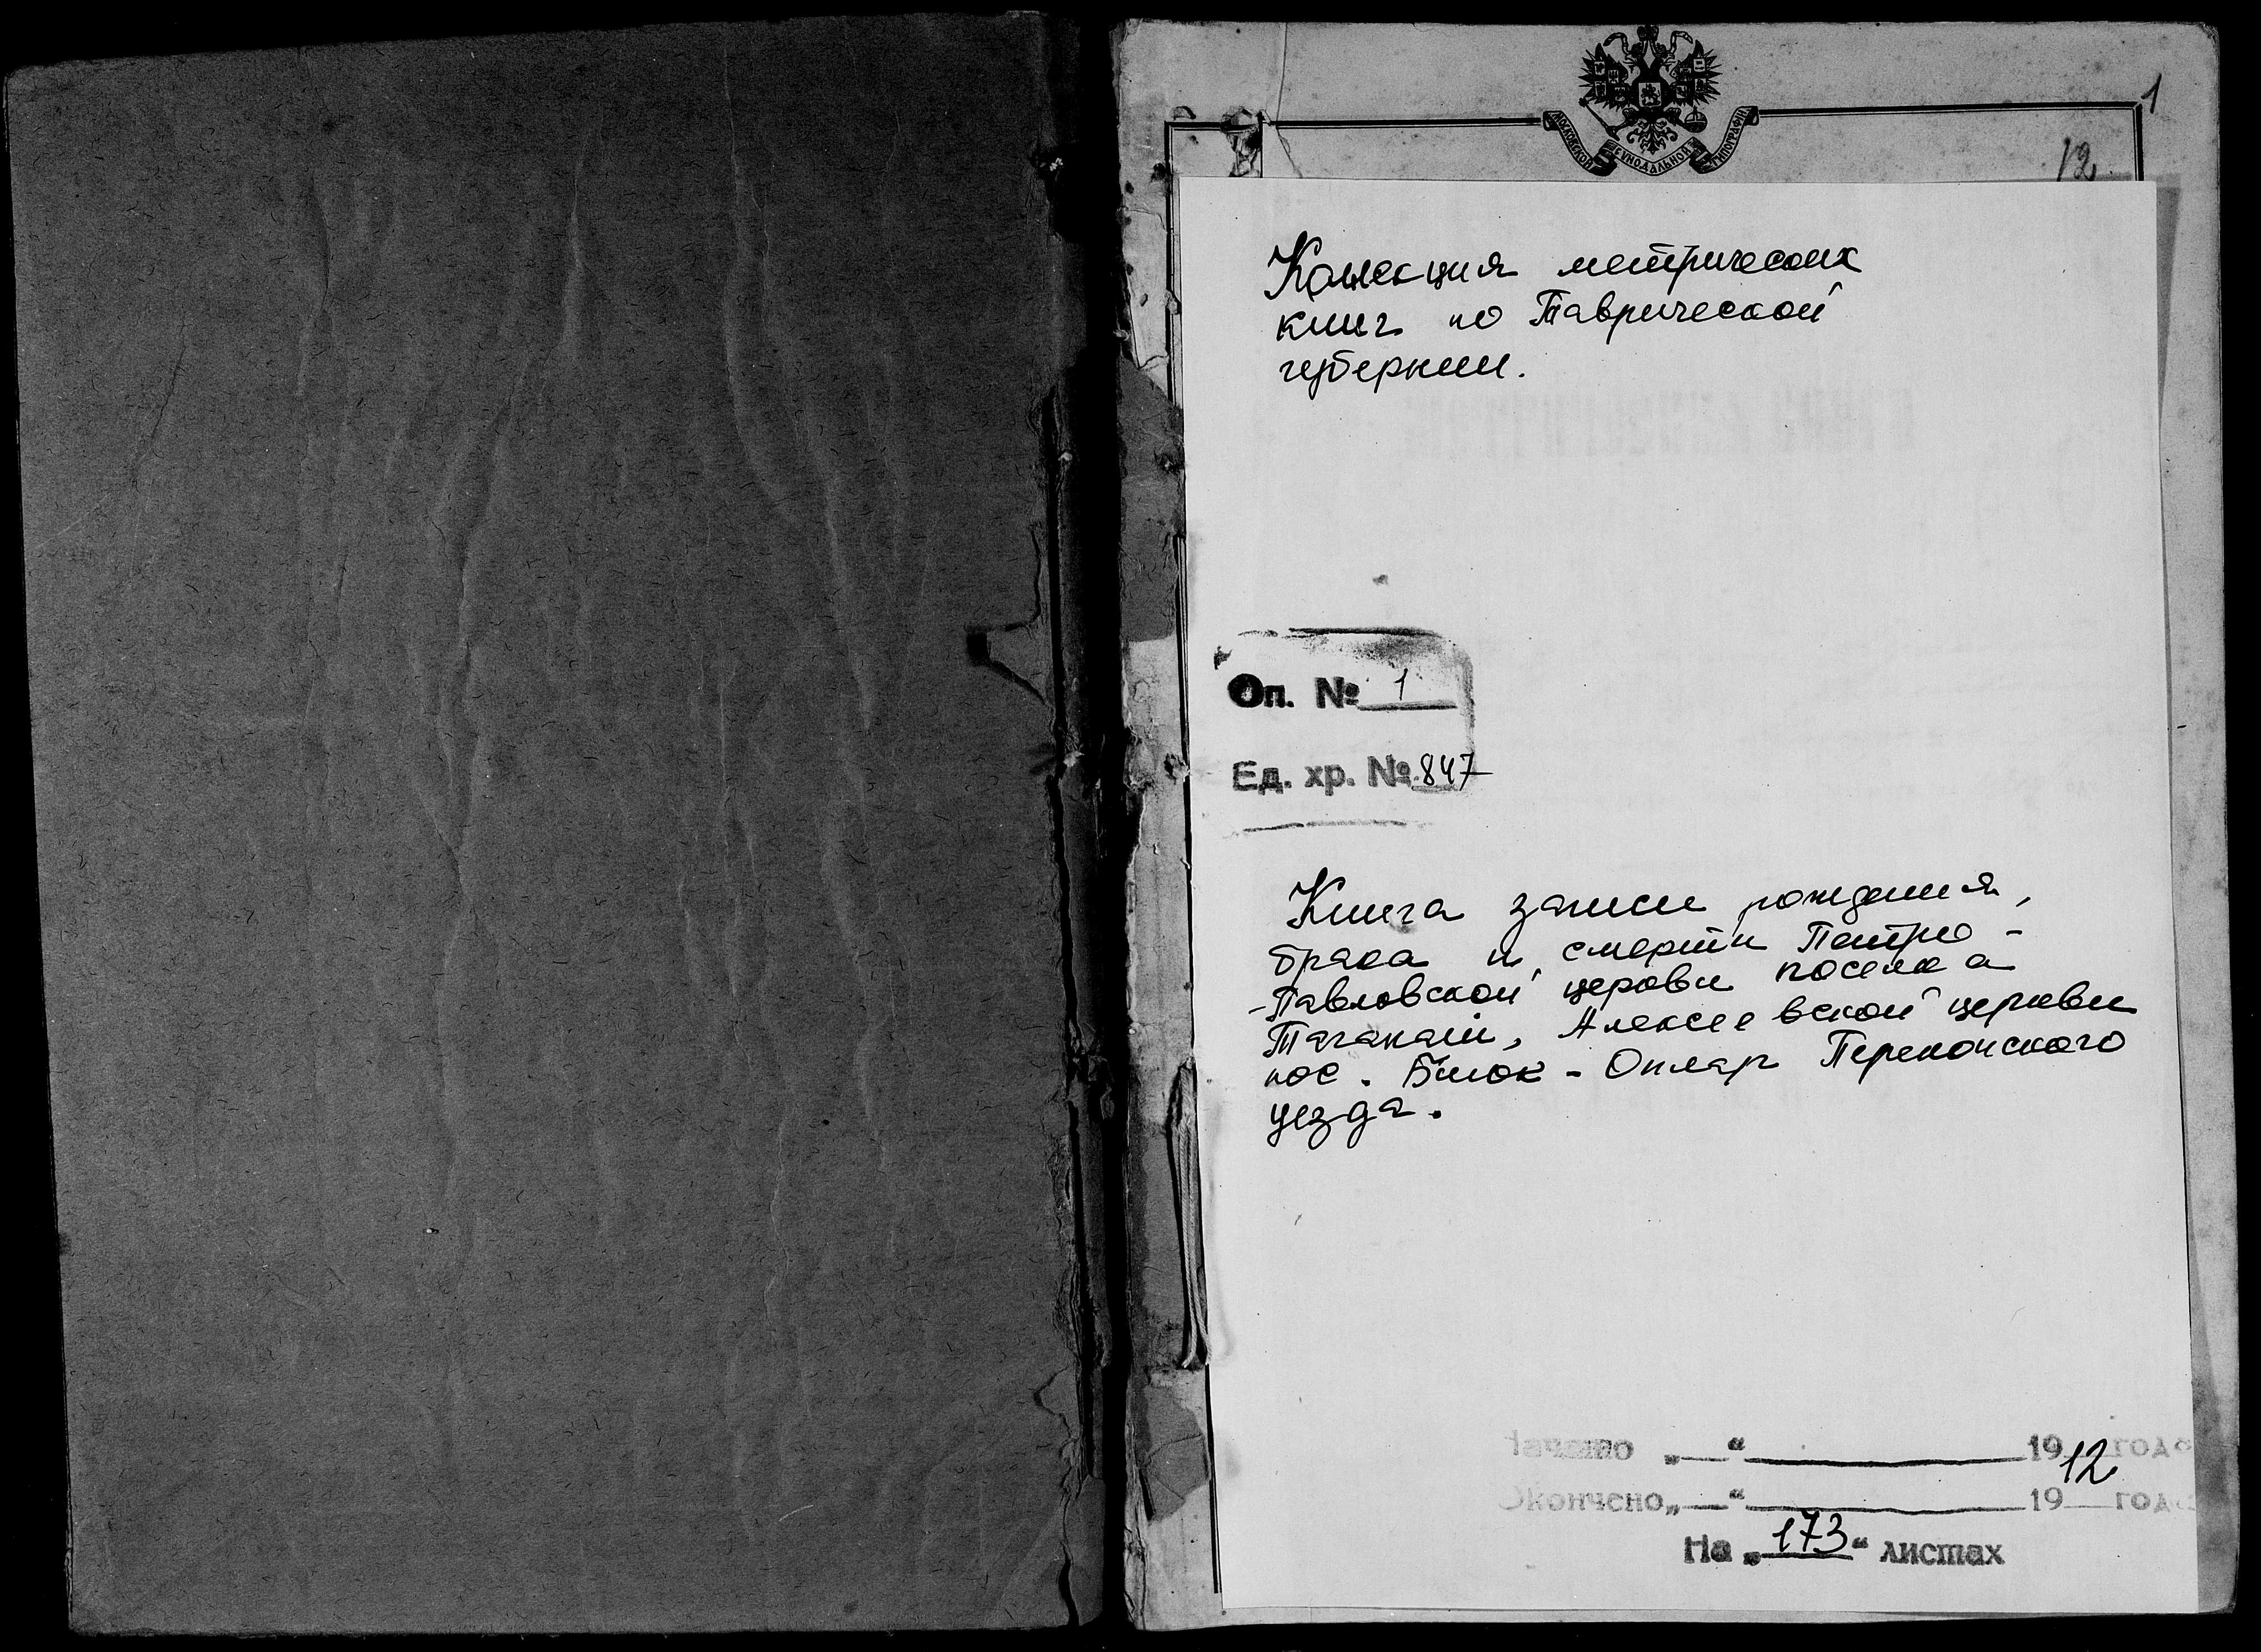 1
МОСКОВСКОЙ СУНОДАЛЬНОЙ ТИПОГРАФІИ
12.
Коллекция метрических
книг по Таврической
губернии.
Оп. № 1
Ед. хр. № 847
Книга записи рождения,
брака и смерти Петро-
-Павловской церкви поселка
Таганаш, Алексеевской церкви
пос. Биюк-Онлар Перекопского
уезда.
Начато „ “ 19 года
12
Окончено „ “ 19 года
На „173“ листах